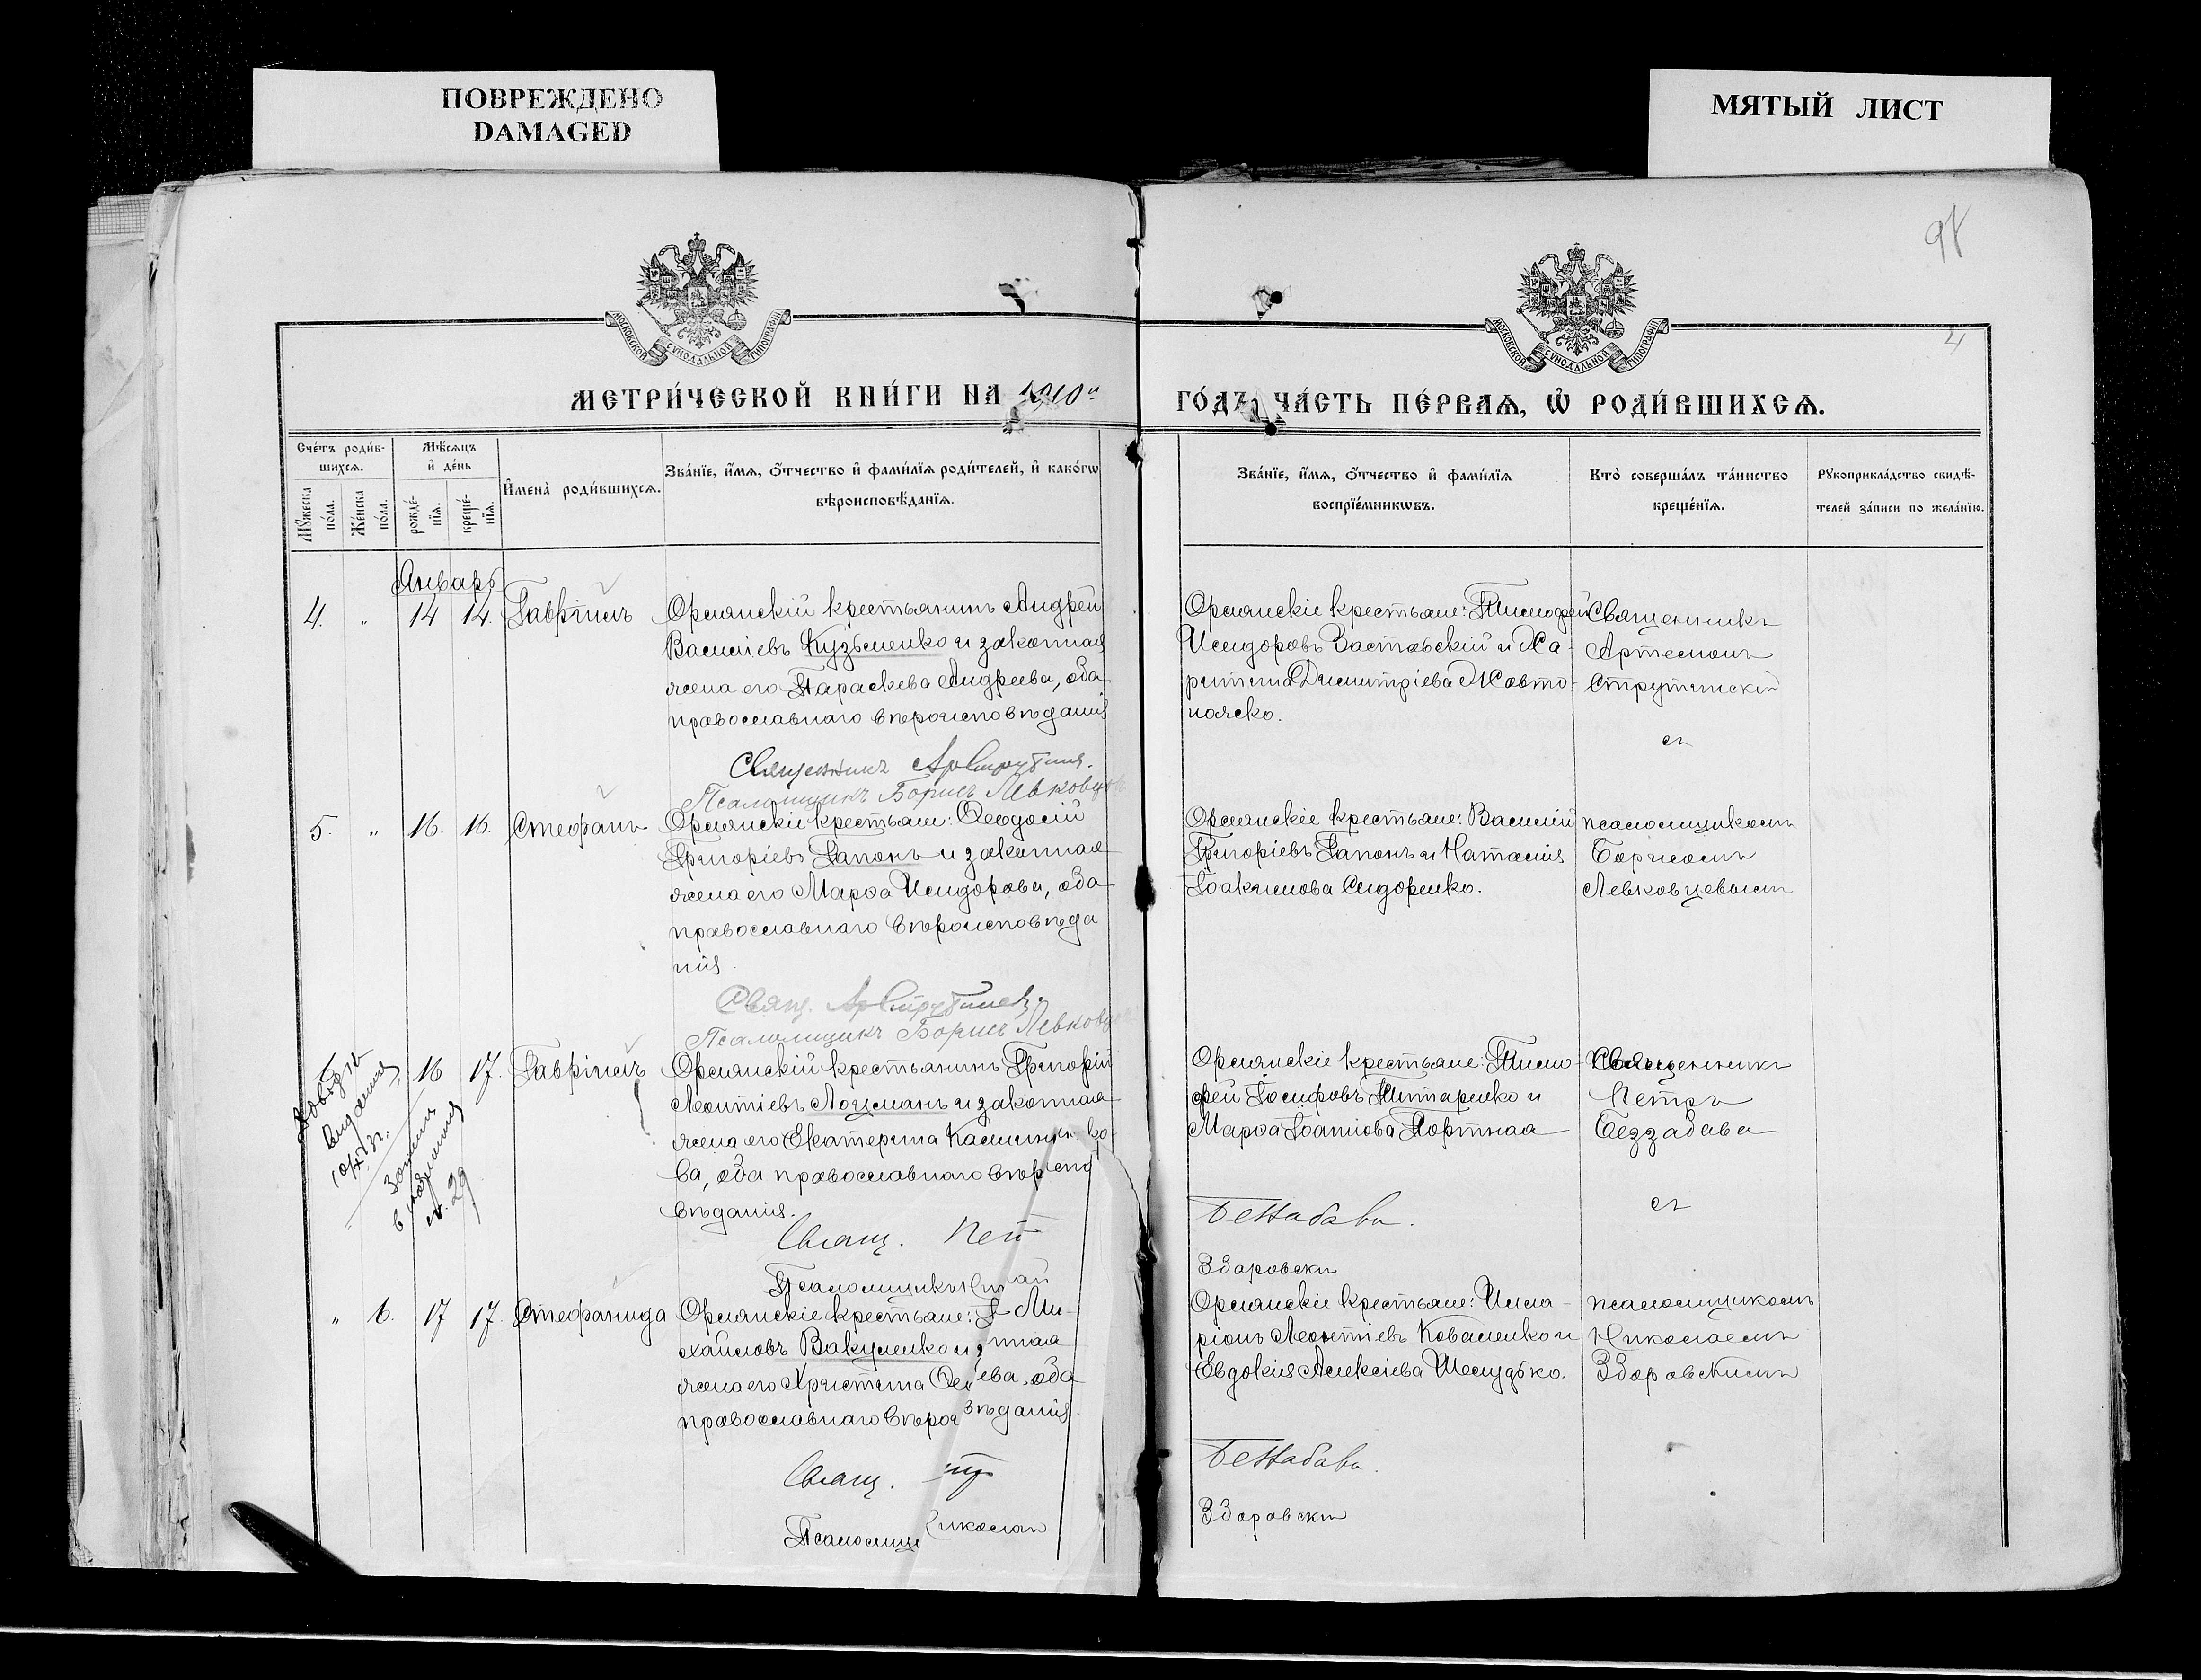 ПОВРЕЖДЕНО
DAMAGED
МЯТЫЙ ЛИСТ
98
МОСКОВСКОЙ СѴНОДАЛЬНОЙ ТИПОГРАФІИ
МОСКОВСКОЙ СѴНОДАЛЬНОЙ ТИПОГРАФІИ
МЕТРИ́ЧЕСКОЙ КНИ́ГИ НА 1910й ГО́ДЪ, ЧА́СТЬ ПЕ́РВАѦ, Ѡ҆ РОДИ́ВШИХСѦ.
Сче́тъ роди́в-
шихсѧ.
Мѣ́сѧцъ
и҆ де́нь
Мꙋ́жеска по́ла.
Же́нска по́ла.
рожде́-
нїѧ.
креще́-
нїѧ.
И҆мена̀ роди́вшихсѧ.
Зва́нїе, и҆́мѧ, ѻ҆́тчество и҆ фами́лїѧ роди́телей, и҆ како́гѡ
вѣроисповѣ́данїѧ.
Зва́нїе, и҆́мѧ, ѻ҆́тчество и҆ фами́лїѧ
воспрїе́мникѡвъ.
Кто̀ соверша́лъ та́инство
креще́нїѧ.
Рꙋкоприкла́дство свидѣ́-
телей за́писи по жела́нїю.
Январь
4. " 14 14. Гавріилъ
Орлянскій крестьянинъ Андрей
Васильевъ Кузьменко и законная
жена его Параскева Андреева, оба
православнаго вѣроисповѣданія
Священникъ Ар Струтин.
Псаломщикъ Борисъ Левковцев
Орлянскіе крестьяне: Тимофей
Исидоровъ Заставскій и Ха-
ритина Димитріева Жовто-
ножко.
Священникъ
Артемонъ
Струтинскій
съ
5. " 16. 16. Стефанъ
Орлянскіе крестьяне: Ѳеодосій
Григоріевъ Гапонъ и законная
жена его Марѳа Исидорова, оба
православнаго вѣроисповѣда
нія
Свящ. Ар Струтинск.
Псаломщикъ Борисъ Левковц
Орлянскіе крестьяне: Василій
Григоріевъ Гапонъ и Наталія
Іоакимова Сидоренко.
псаломщикомъ
Борисомъ
Левковцевымъ
16 17. Гавріилъ
Орлянскій крестьянинъ Григорій
Леонтіевъ Лоцманъ и законная
жена его Екатерина
ва, оба православнаго вѣр
вѣданія.
Свящ. Пет
Псаломщикъ
Орлянскіе крестьяне: Тимо-
фей Іосифовъ Титаренко и
Марѳа Іоаннова Портная
Беззабава.
Здоровскій
Священникъ
Петръ
Беззабава
съ
" 6. 17 17. Стефанида
Орлянскіе крестьяне: Ми-
хайловъ Вакуленко и нная
жена его Христина ева, оба
православнаго вѣрои вѣданія.
Свящ.
Псаломщ иколай
Орлянскіе крестьяне: Илла-
ріонъ Леонтіевъ Коваленко и
Евдокія Алексіева Шелудько.
Беззабава.
Здоровскій
псаломщикомъ
Николаемъ
Здоровскимъ